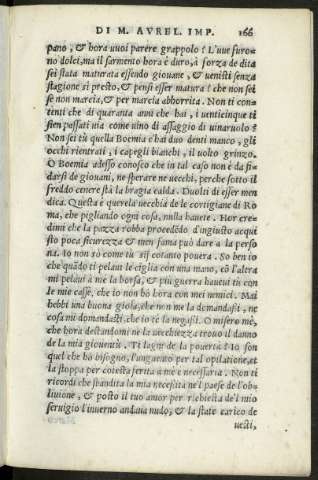 DI M. AVREL. IMP. 166
pano, & hora vuoi parere grappolo? L'uue furo-
no dolci, ma il sarmento hora è duro, à forza de dita
sei stata maturata essendo giouane, & uenisti senza
stagione si presto, & pensi esser matura? che non sei
se non marcia, & per marcia abborrita. Non ti con-
tenti che di quaranta anni che hai, i uenticinque ti
sien passati uia come uino di assaggio di uinaruolo?
Non sei tù quella Boemia c'hai duo denti manco, gli
occhi rientrati, i capegli bianchi, il uolto grinzo.
O Boemia adesso conosco che in tal caso non è da fi-
darsi de giouani, ne sperare ne uecchi, perche sotto il
freddo cenere stà la bragia calda. Duolti di esser men
dica. Questa è querela uecchia de le cortigiane di Ro
ma, che pigliando ogni cosa, nulla hauete. Hor cre-
dimi che la pazza robba procedēdo d'ingiusto acqui
sto poca sicurezza & men fama può dare a la perso
na. Io non sò come tù sij cotanto pouera. So ben io
che quādo ti pelaui le ciglia con una mano, cō l'altra
mi pelaui à me la borsa, & più guerra haueui tù con
le mie casse, che io non hò hora con mei nemici. Mai
hebbi una buona gioia, che non me la domandasti, ne
cosa mi domandasti, che io te la negasi. O misero me,
che hora destandomi ne la vecchiezza trouo il danno
de la mia giouentù. Ti lagni de la pouertà? Io son
quel che hò bisogno, l'unguento per tal opilatione, et
la stoppa per cotesta ferita a me è necessaria. Non ti
ricordi che sbandita la mia necessita ne'l paese de l'ob-
liuione, & posto il tuo amor per richiesta de'l mio
seruigio l'inuerno andaua nudo, & la state carico de
uesti,